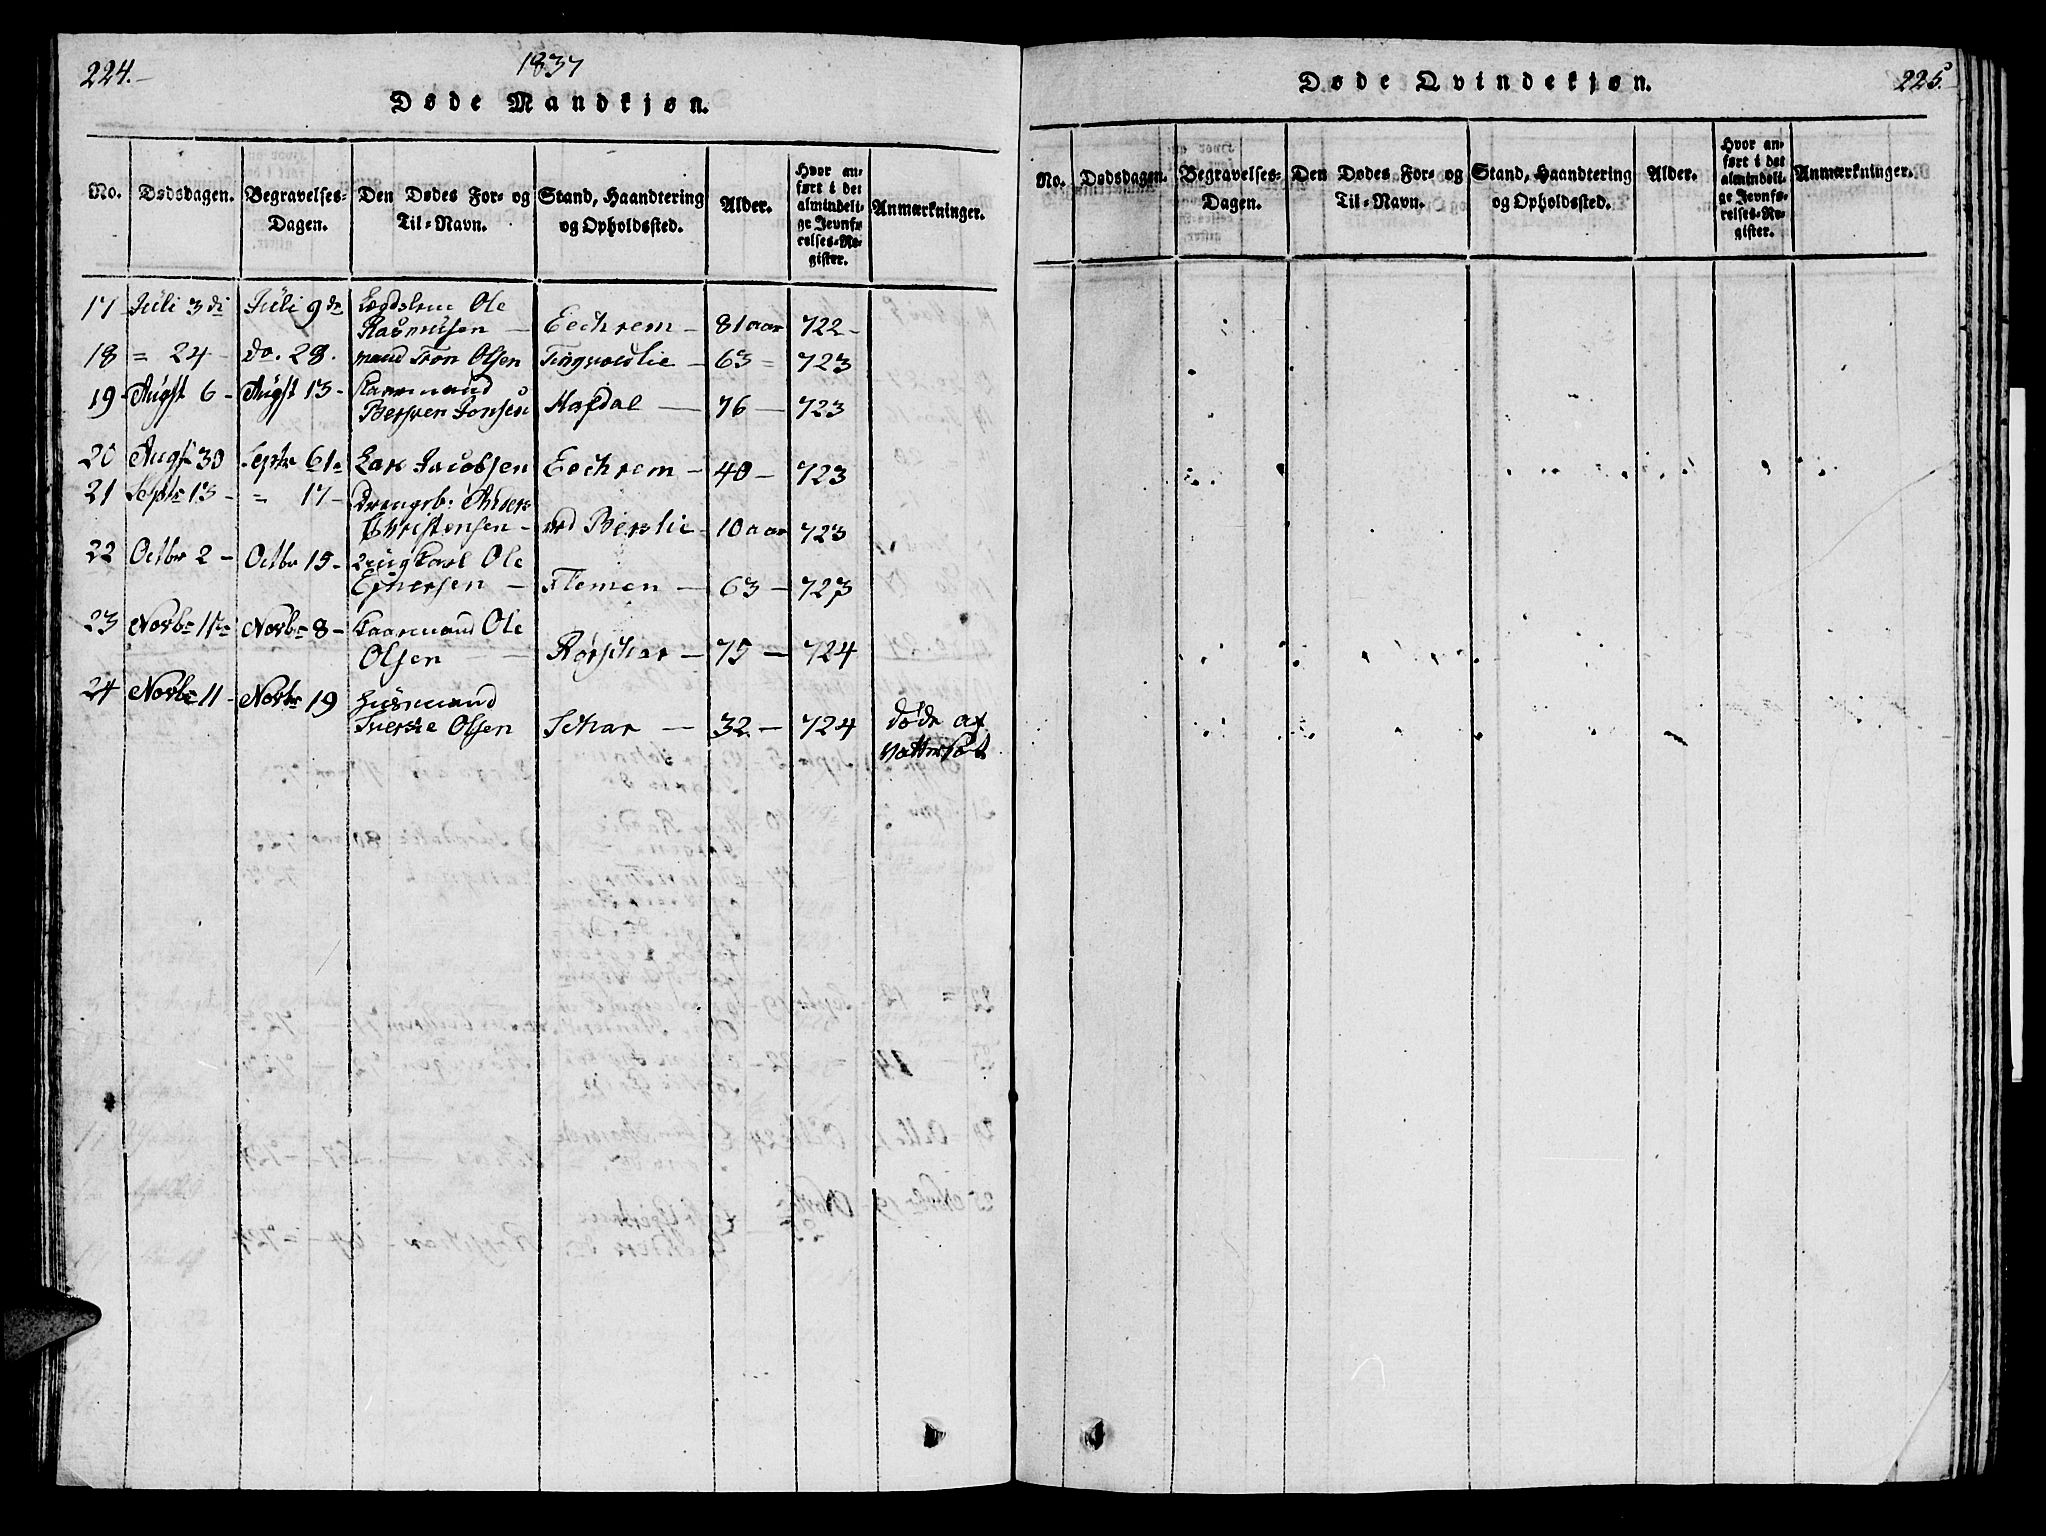 224.
1837
Døde Mandkjøn.
No. Dødsdagen. Begravelses-Dagen. Den Dødes For- og Til-Navn. Stand, Haandtering og Opholdssted. Alder. Hvor anført i det almindelige Jevnførelses-Register. Anmærkninger.
17 Juli 3di Juli 9de Ole
Rasmusen — Eechrem — 81 aar 722 —
18 = 24 — do. 28. mand Tron Olsen Tingvoldlie — 63 = 723
19 Augst 6 — Augst 13 — Kaarmand
Bersven Jonsen Hafdal — 76 — 723
20 Augst 30 Septr Lars Jacobsen Eechrem — 40 — 723
21 Septr 13 — = 17 — Drengb: Anders
Christensen — Berslie — 10 aar 723
22 Octbr 2 — Octbr 15 — Ungkarl Ole
Ejnersen — Flemen — 63 — 723
23 Novbr Novbr 8 — Kaarmand Ole
Olsen — Rørschar — 75 — 724
24 Novbr 11 — Novbr 19 Huusmand
Sverke Olsen Schar — 32 — 724 døde af
Vattersot
Døde Qvindekjøn.
225.
No. Dødsdagen. Begravelses-Dagen. Den Dødes For- og Til-Navn. Stand, Haandtering og Opholdssted. Alder. Hvor anført i det almindelige Jevnførelses-Register. Anmærkninger.